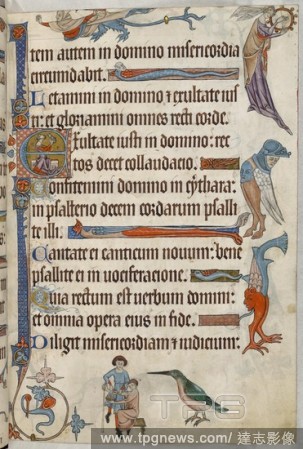 tem autem in domino misericordia
circumdabit.
Letamini in domino ⁊ exultate iusti
: et gloriamini omnes recti corde.
Exultate iusti in domino: rec
tos decet collaudacio.
Confitemini domino in cythara:
in psalterio decem cordarum psalli
te illi.
Cantate ei canticum nouum: bene
psallite ei in uociferacione.
Quia rectum est uerbum domini:
et omnia opera eius in fide.
Diligit misericordiam ⁊ iudicium:
TPG
www.tpgnews.com/達志影像